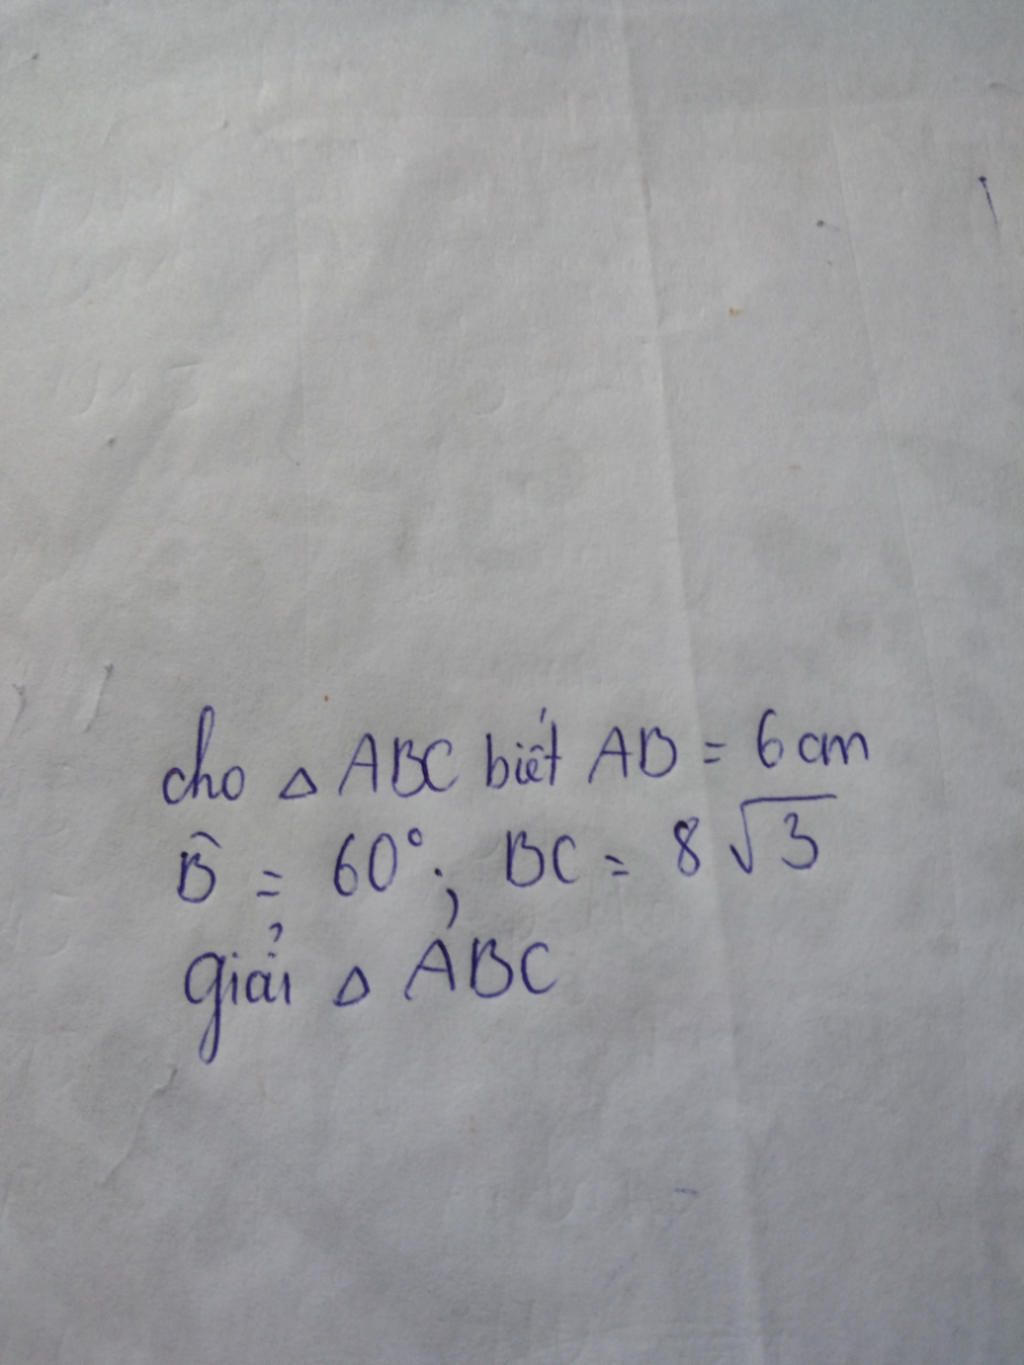 cho △ ABC biết AB = 6 cm
B̂ = 60°; BC = 8√3
giải △ ABC